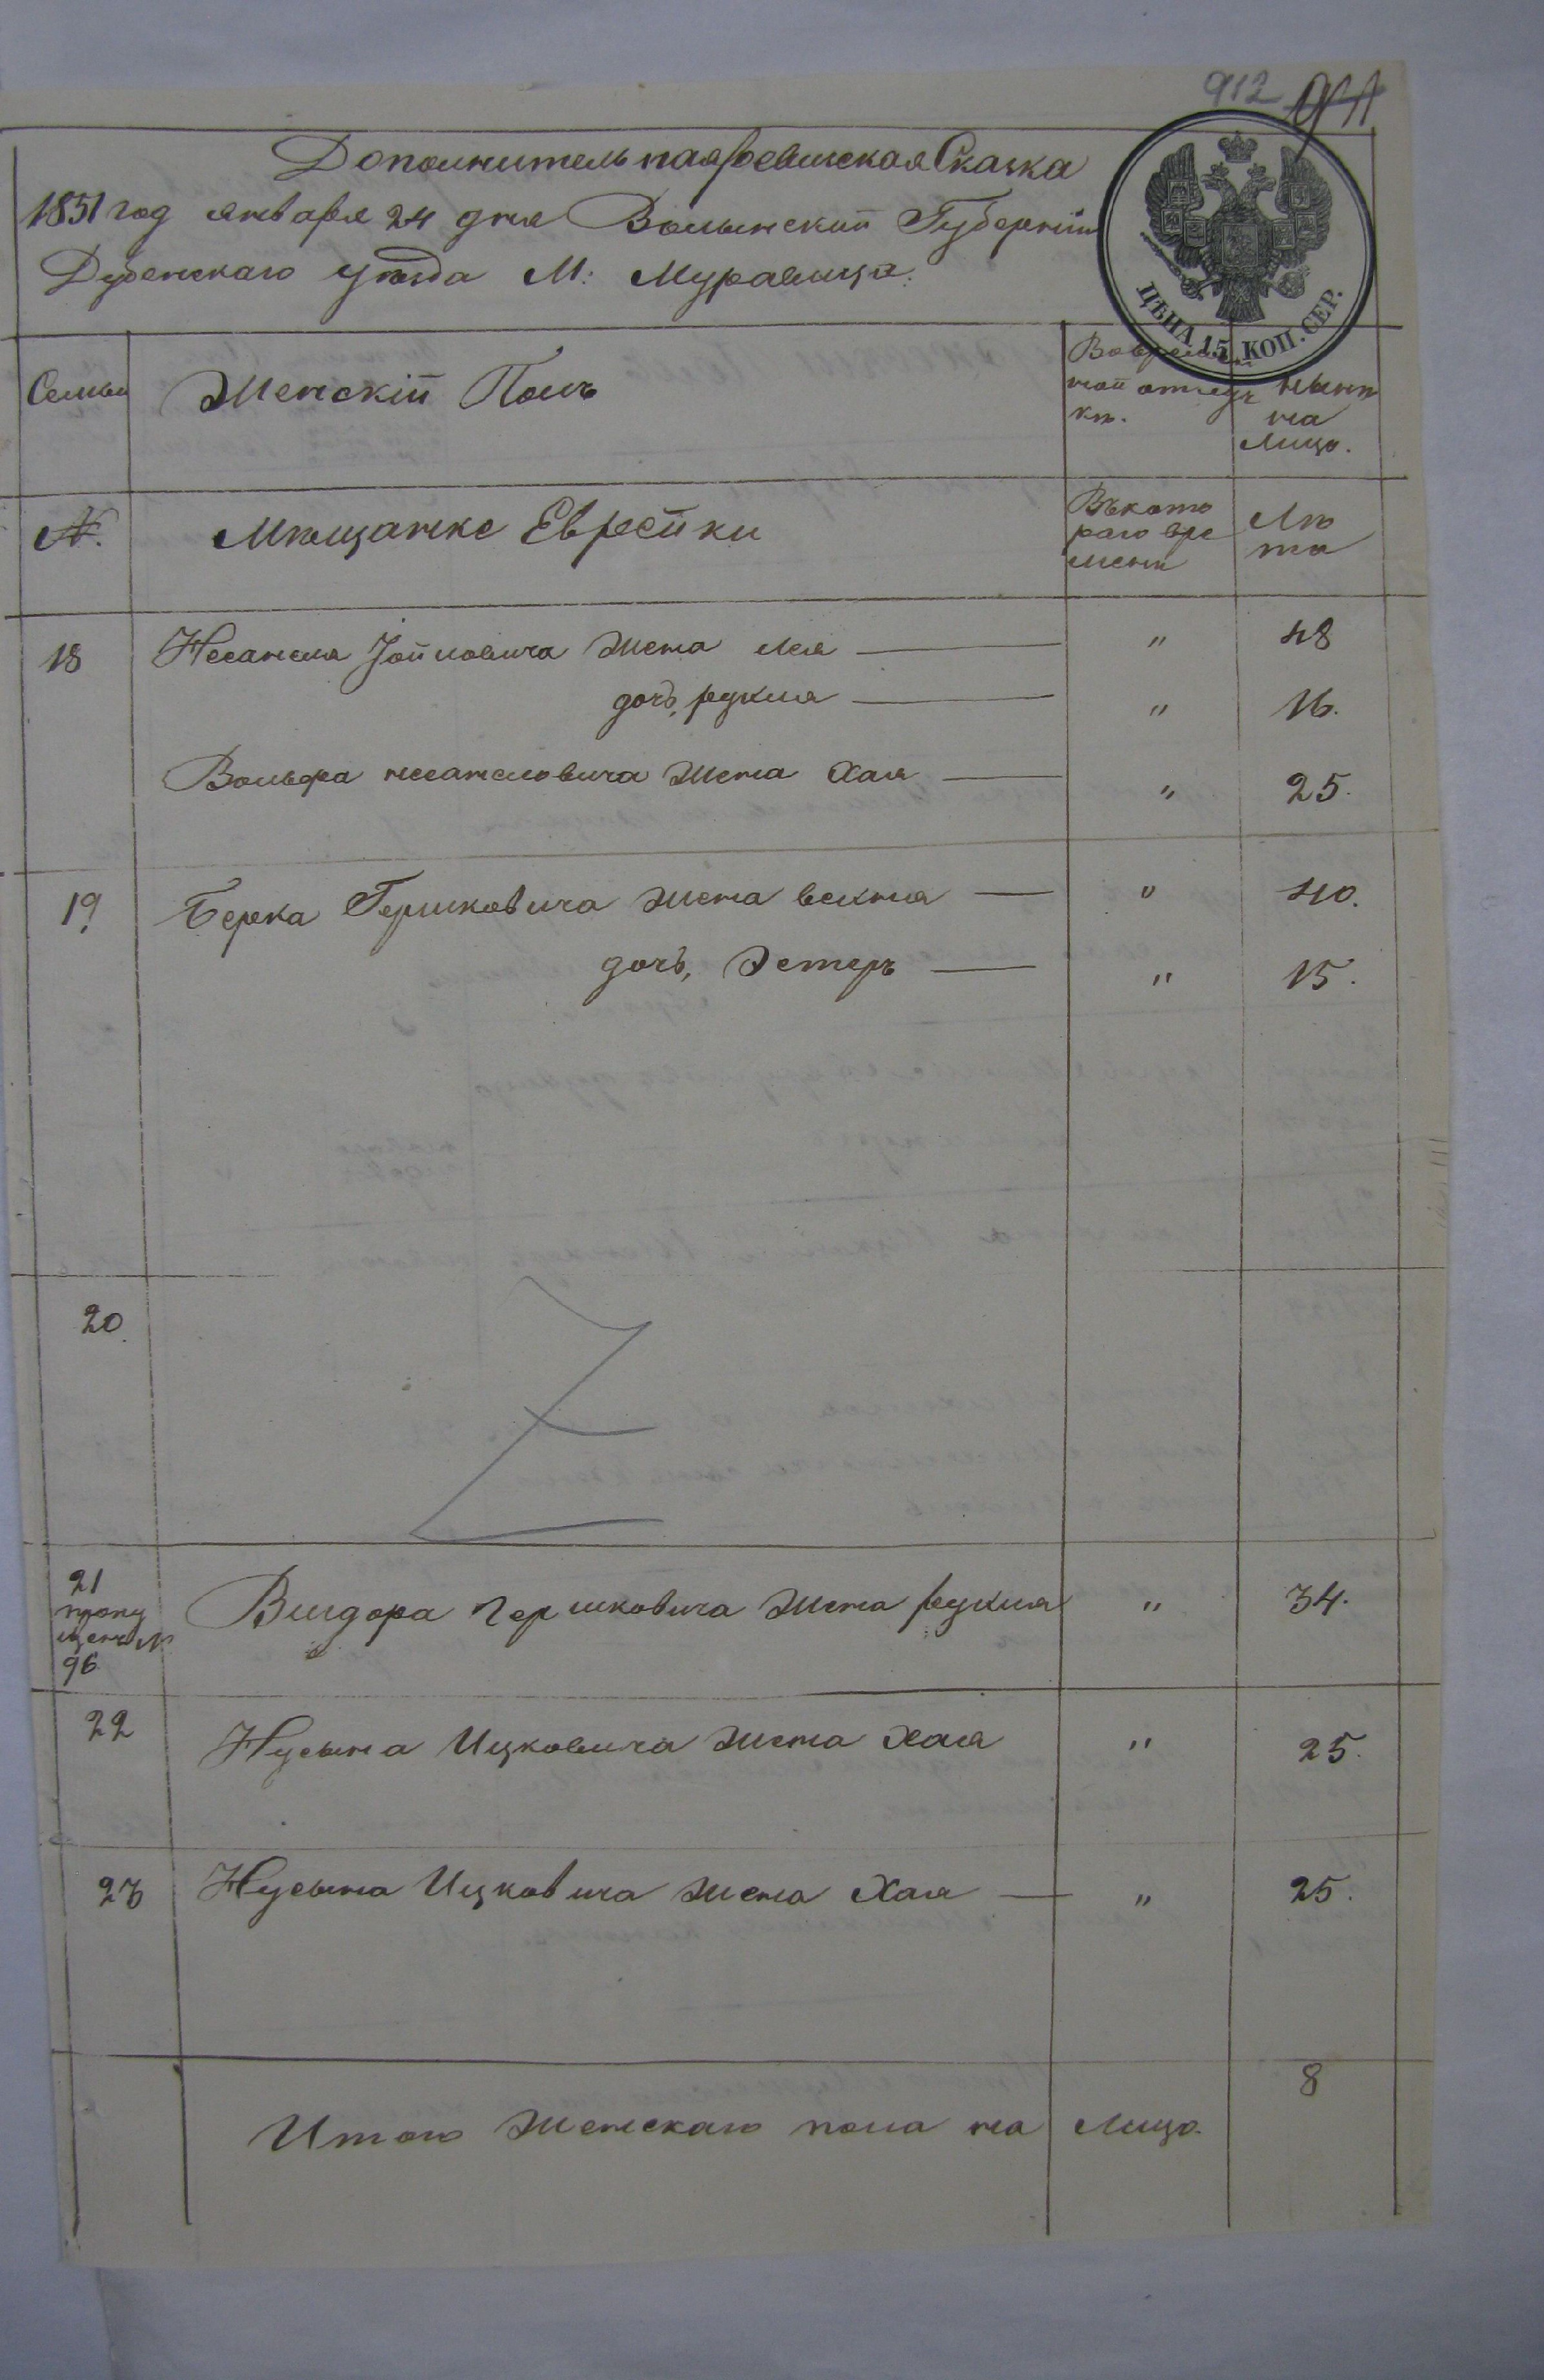 912 911
Дополнительная ревизская Сказка
1851 год января 24 дня Волынской Губернiи
Дубенскаго уѣзда М: Муравица.
ЦѢНА 15 КОП. СЕР.
Семьи
Женскiй Полъ
Во временной отлучкѣ.
Нынѣ на лицо.
№.
Мѣщанке Еврейки
Въ которо
раго вре
мени
Лѣ
та
18 Несанеля Іойновича жена Лея — " 48
дочь, рухля — " 16.
Вольфа несанеловича жена Хая — " 25.
19 Берка Гершковича жена вихня — " 40.
дочь, Эстеръ — " 15.
20
21 Вигдора Гершковича жена рухля " 34.
пропу
щенъ №
96
22 Нусына Ицковича жена Хая " 25.
23 Нусына Ицковича жена Хая — " 25.
Итого женскаго пола на лицо. 8